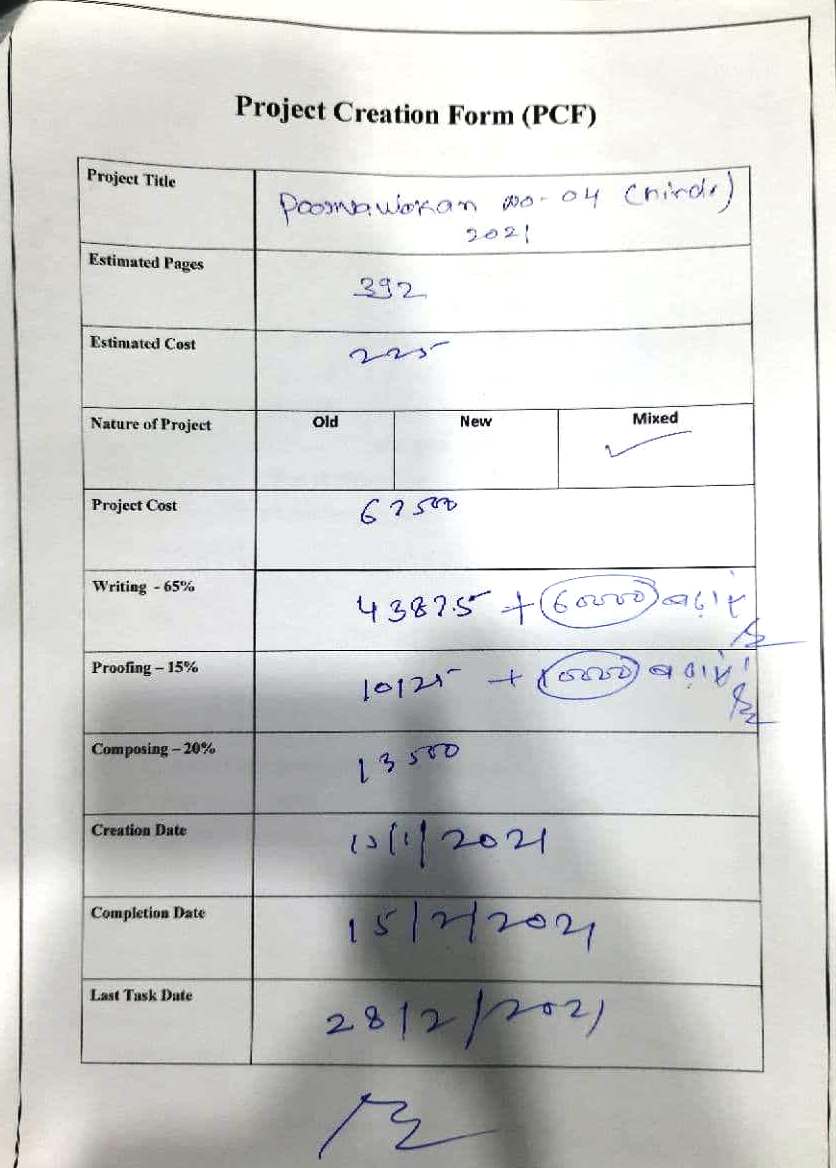 Project Creation Form (PCF)
Project Title
Poorwawlokan no-04 (hindi)
2021
Estimated Pages
392
Estimated Cost
225
Nature of Project
Old New Mixed
✓
Project Cost
67500
Writing - 65%
43875 + 60000
Proofing – 15%
10125 + 10000
Composing – 20%
13500
Creation Date
/1/2021
Completion Date
15/2/2021
Last Task Date
28/2/2021